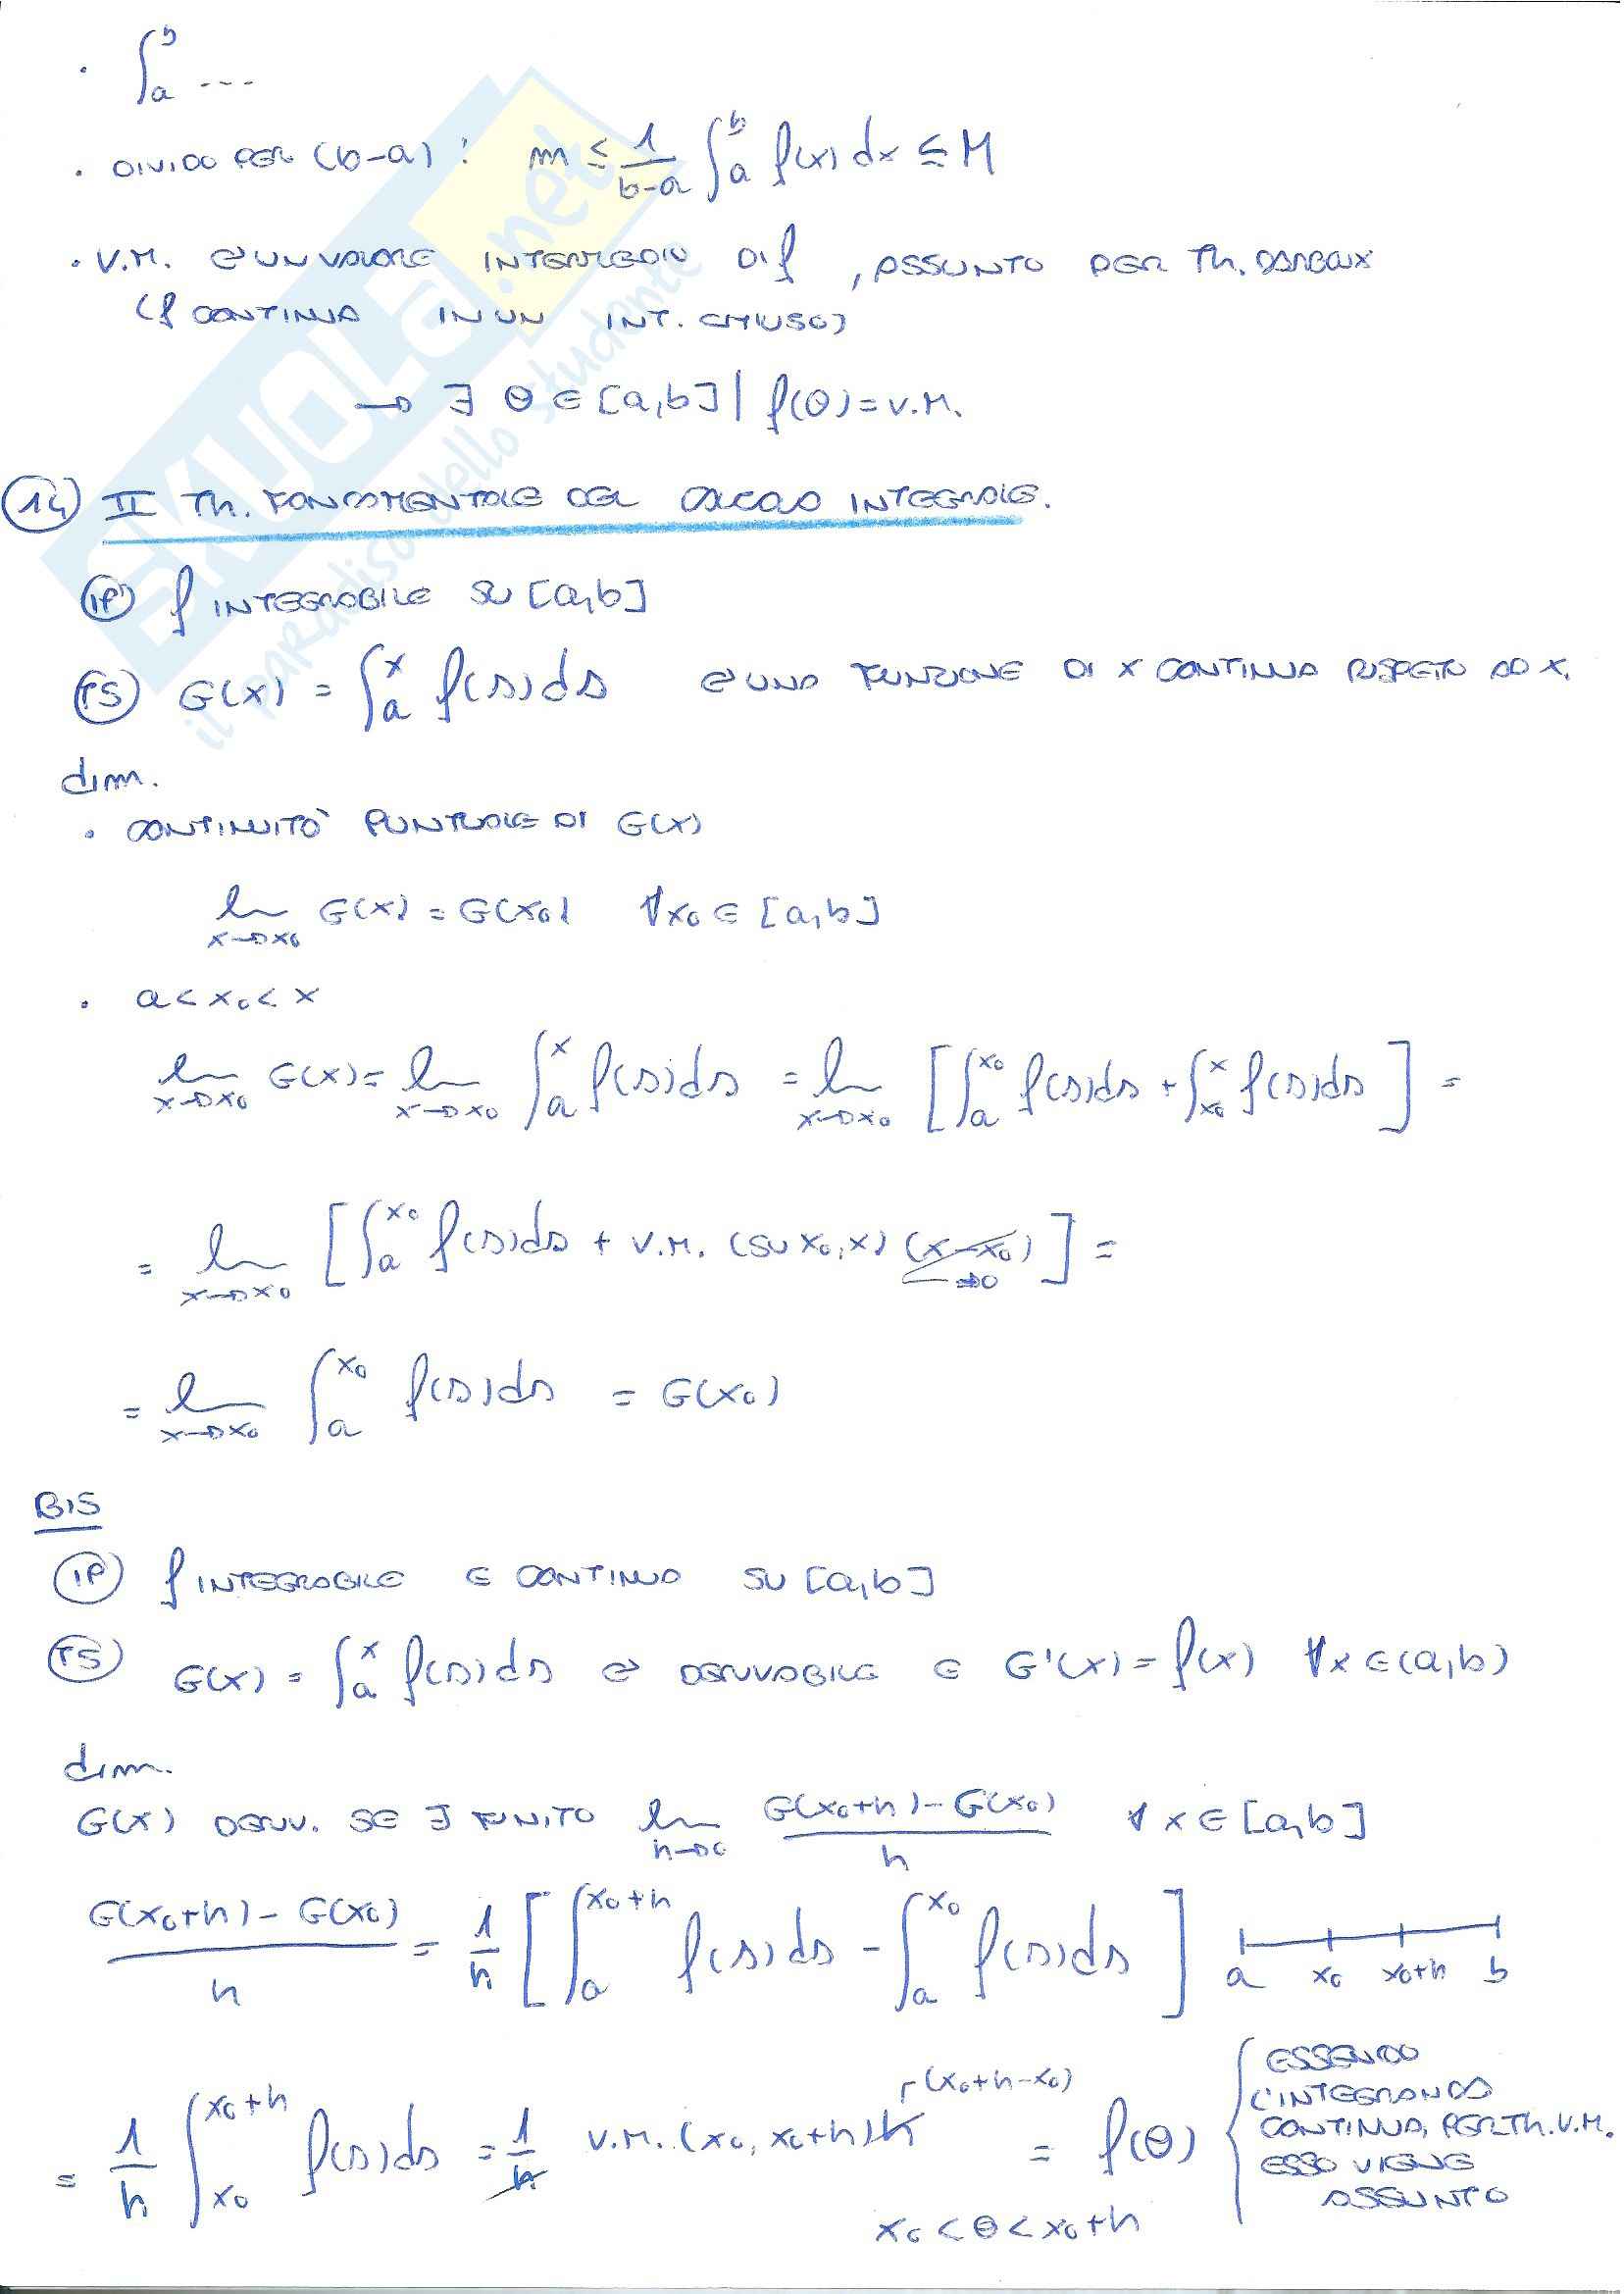 · ∫_a^b ...
· DIVIDO PER (b-a) : m ≤ 1/(b-a) ∫_a^b f(x) dx ≤ M
· V.M. È UN VALORE INTERMEDIO DI f, ASSUNTO PER Th. DARBOUX
(f CONTINUA IN UN INT. CHIUSO)
→ ∃ θ ∈ [a,b] | f(θ) = V.M.
14) II Th. FONDAMENTALE DEL CALCOLO INTEGRALE.
IP) f INTEGRABILE SU [a,b]
TS) G(x) = ∫_a^x f(s)ds È UNA FUNZIONE DI x CONTINUA RISPETTO AD x.
dim.
· CONTINUITÀ PUNTUALE DI G(x)
lim_{x→x₀} G(x) = G(x₀) ∀x₀ ∈ [a,b]
· a < x₀ < x
lim_{x→x₀} G(x) = lim_{x→x₀} ∫_a^x f(s)ds = lim_{x→x₀} [∫_a^{x₀} f(s)ds + ∫_{x₀}^x f(s)ds] =
= lim_{x→x₀} [∫_a^{x₀} f(s)ds + V.M. (SU x₀,x) (x-x₀) →0] =
= lim_{x→x₀} ∫_a^{x₀} f(s)ds = G(x₀)
BIS
IP) f INTEGRABILE E CONTINUA SU [a,b]
TS) G(x) = ∫_a^x f(s)ds È DERIVABILE E G'(x) = f(x) ∀x ∈ (a,b)
dim.
G(x) DERIV. SE ∃ FINITO lim_{h→0} (G(x₀+h) - G(x₀))/h ∀ x ∈ [a,b]
(G(x₀+h) - G(x₀))/h = 1/h [∫_a^{x₀+h} f(s)ds - ∫_a^{x₀} f(s)ds]
a x₀ x₀+h b
= 1/h ∫_{x₀}^{x₀+h} f(s)ds = 1/h V.M. (x₀, x₀+h) h = f(θ)
(x₀+h-x₀)
x₀ < θ < x₀+h
ESSENDO
L'INTEGRANDA
CONTINUA, PER Th. V.M.
ESSO VIENE
ASSUNTO
SKUOLA.net
il paradiso dello studente